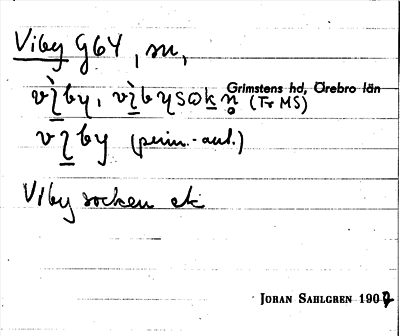 Viby G64, sn,
vìby, vìbysokn̥ Grimstens hd, Örebro län
(Tr MS)
vìby (pers.-aut.)
Viby socken etc
JORAN SAHLGREN 1907